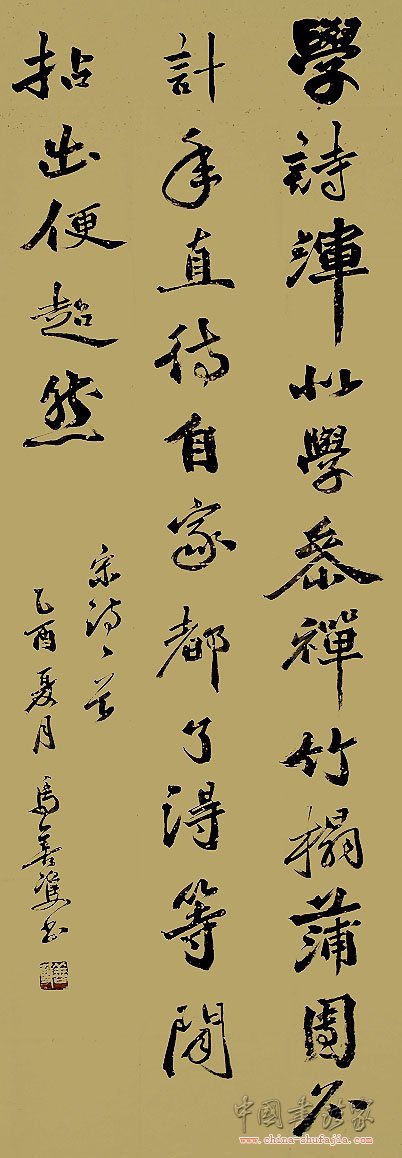 學詩渾似學參禪竹榻蒲團不
計年直待自家都了得等閒
拈出便超然
宋詩一首
乙酉夏月 馬善雙書
中國書法家
www.china-shufajia.com